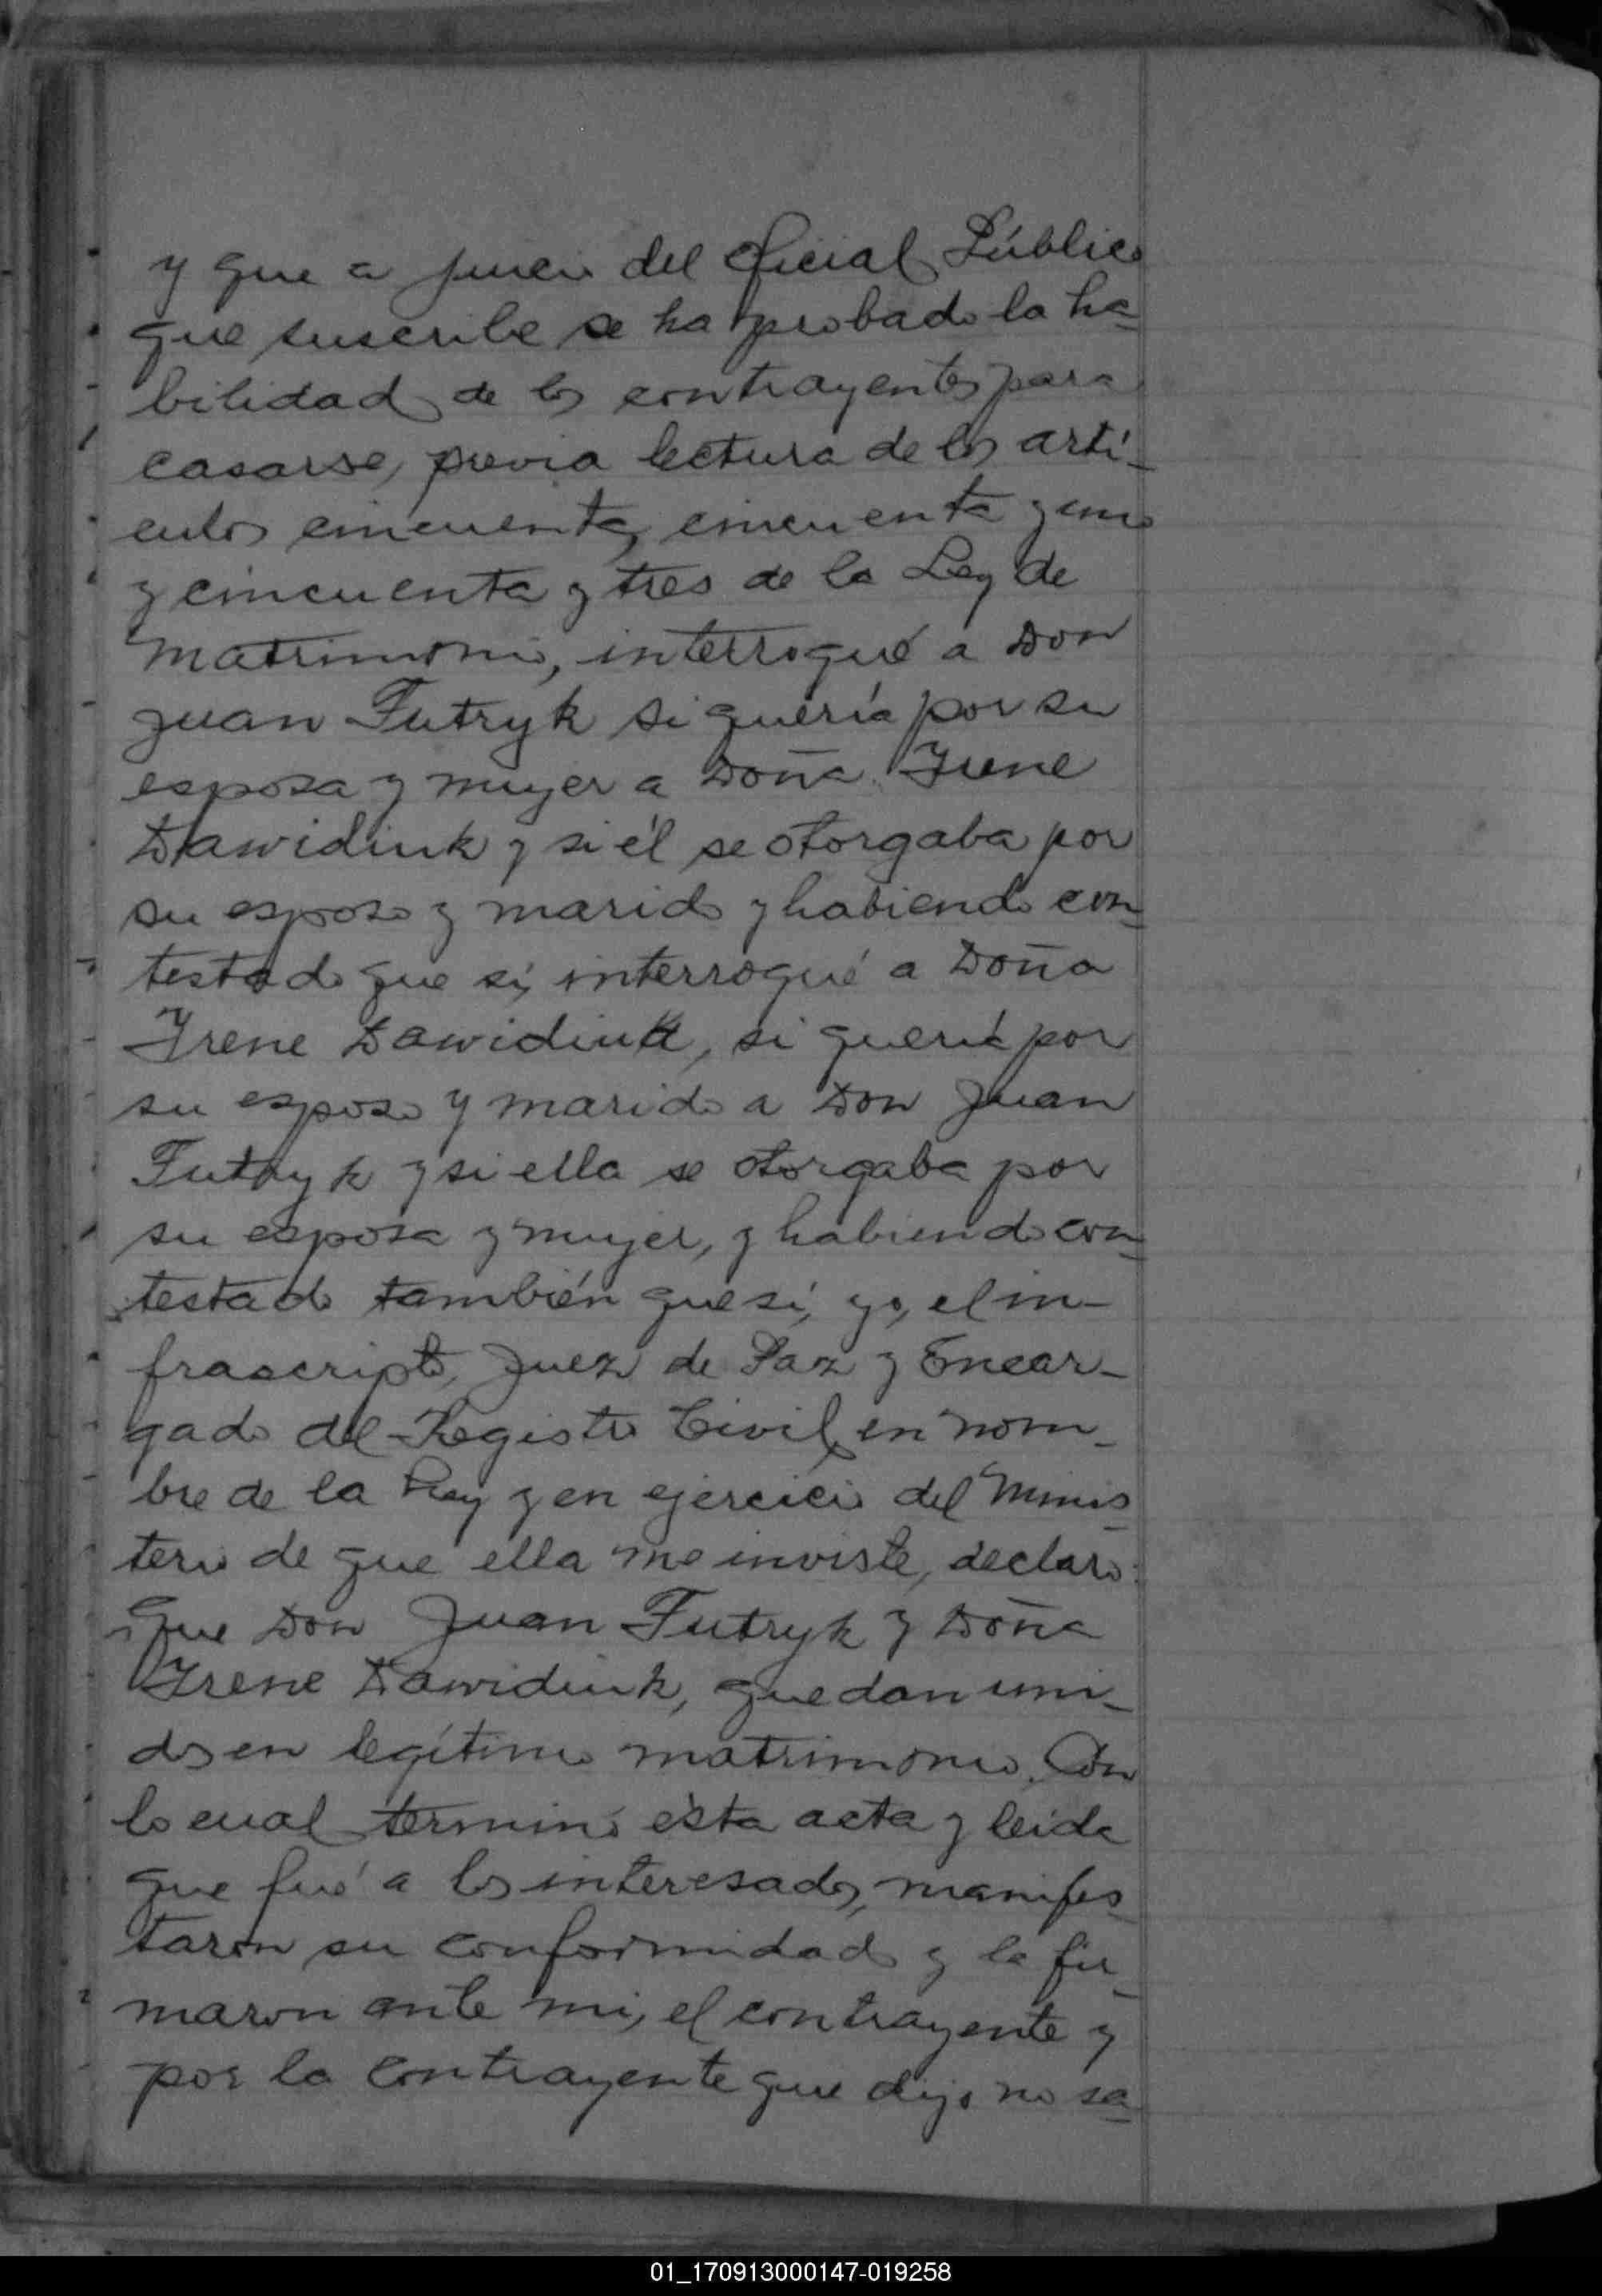 y que a juicio del Oficial Público
que suscribe se ha probado la ha-
bilidad de los contrayentes para
casarse, previa lectura de los artí-
culos cincuenta, cincuenta y uno
y cincuenta y tres de la Ley de
Matrimonio, interrogué a Don
Juan Futryk si quería por su
esposa y mujer a Doña Irene
Dawidiuk y si él se otorgaba por
su esposo y marido y habiendo con-
testado que sí, interrogué a Doña
Irene Dawidiuk, si quería por
su esposo y marido a Don Juan
Futryk y si ella se otorgaba por
su esposa y mujer, y habiendo con-
testado también que sí, yo, el in-
frascripto, Juez de Paz y Encar-
gado del Registro Civil, en nom-
bre de la Ley y en ejercicio del Minis-
terio de que ella me inviste, declaro:
Que Don Juan Futryk y Doña
Irene Dawidiuk, quedan uni-
dos en legítimo matrimonio. Con
lo cual terminó ésta acta y leída
que fué a los interesados, manifes-
taron su conformidad y la fir-
maron ante mi, el contrayente y
por la contrayente que dijo no sa-
01_170913000147-019258